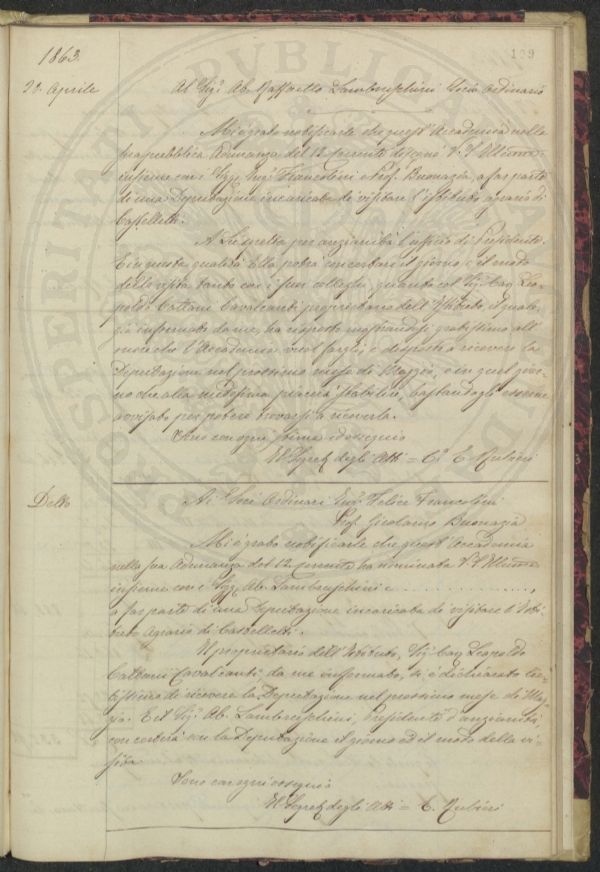 1863.
139
Aprile
Al Sig.r Ab. Raffaello Lambruschini Socio Ordinario
Mi è grato notificarle che quest'Accademia nella
sua pubblica Adunanza del 12 corrente V. S. Illma
insieme con i Sigg. Ing.r Francolini e Prof. Buonazia, a far parte
di una Deputazione incaricata di visitare l'Istituto agrario di
Castelletti.
A Lei spetta per anzianità l'ufficio di Presidente.
E in questa qualità Ella potrà concertare il giorno e il modo
della visita tanto con i suoi colleghi, quanto col Sig. Cav. Leo-
poldo Cattani Cavalcanti proprietario dell'Istituto, il quale
già informato da me, ha risposto mostrandosi gratissimo all'
onore che l'Accademia vuol fargli, e disposto a ricevere la
Deputazione nel prossimo mese di Maggio, e in quel gior-
no che alla medesima piacerà stabilire, bastandogli esserne
avvisato per potere trovarsi a riceverla.
Sono con ogni stima ed ossequio
Il Segret. degli Atti = C. E. Rubieri
Detto
Ai Soci Ordinari Ing.r Felice Francolini
Prof. Girolamo Buonazia
Mi è grato notificarle che quest'Accademia
nella sua Adunanza del 12 corrente ha nominato V. S. Illma
insieme con i Sigg. Ab. Lambruschini e . . . . . . . . . ,
a far parte di una Deputazione incaricata di visitare l'Isti-
tuto Agrario di Castelletti.
Il proprietario dell'Istituto, Sig. Cav. Leopoldo
Cattani Cavalcanti da me informato, si è dichiarato lie-
tissimo di ricevere la Deputazione nel prossimo mese di Mag-
gio. Ed il Sig. Ab. Lambruschini, Presidente d'anzianità
concerterà con la Deputazione il giorno ed il modo della vi-
sita.
Sono con ogni ossequio
Il Segret. degli Atti = E. Rubieri
PROSPERITATI PUBLICAE